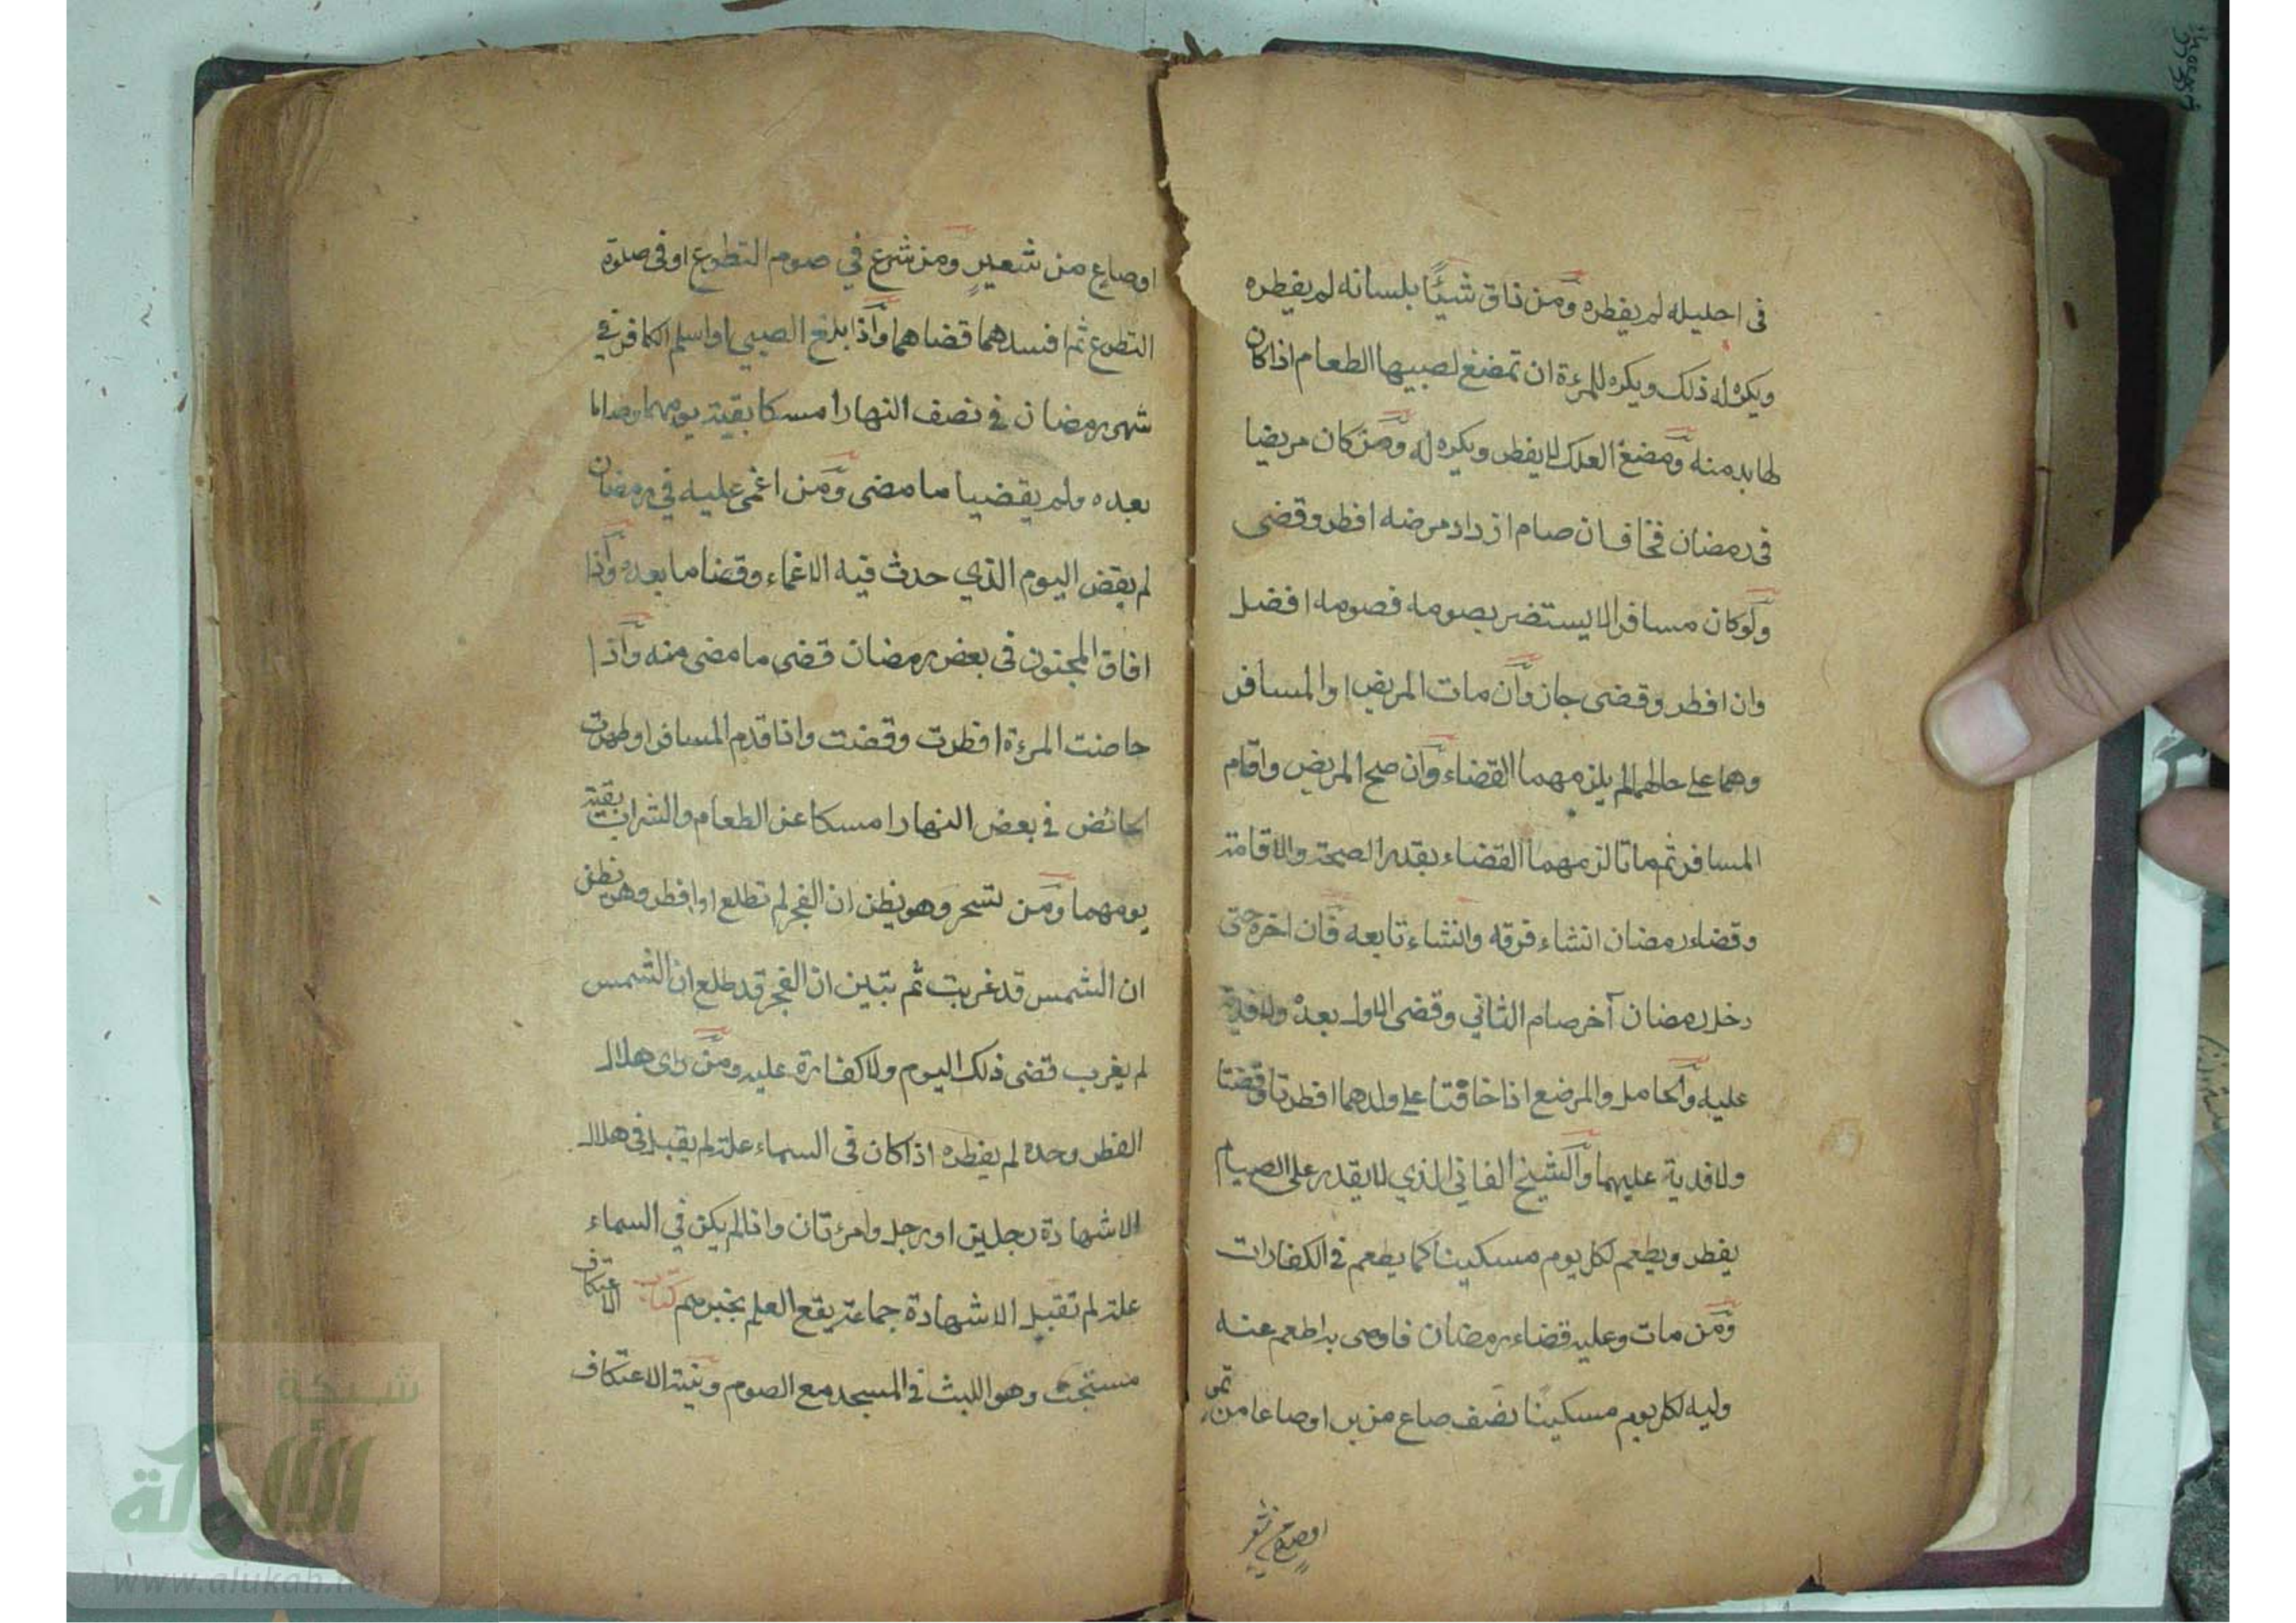 فى احليله لم يفطره ومن ذاق شيئًا بلسانه لم يفطره
ويكره له ذلك ويكره للمرءة ان تمضغ لصبيها الطعام اذا كان
لها بد منه ومضغ العلك لا يفطر ويكره له ومن كان مريضا
فى رمضان فخاف ان صام ازداد مرضه افطر وقضى
ولو كان مسافرا لا يستضر بصومه فصومه افضل
وان افطر وقضى جاز وان مات المريض او المسافر
وهما على حالهما لم يلزمهما القضاء وان صح المريض واقام
المسافر ثم ماتا لزمهما القضاء بقدر الصحة والاقامة
وقضاء رمضان انشاء فرقه وانشاء تابعه فان اخره حتى
دخل رمضان آخر صام الثاني وقضى الاول بعده ولا فدية
عليه والحامل والمرضع اذا خافتا على ولدهما افطرتا وقضتا
ولا فدية عليهما والشيخ الفاني الذي لا يقدر على الصيام
يفطر ويطعم لكل يوم مسكينا كما يطعم فى الكفارات
ومن مات وعليه قضاء رمضان فاوصى به اطعم عنه
وليه لكل يوم مسكينا نصف صاع من بر او صاعا من تمر
او صاع من شعير
او صاع من شعير ومن شرع في صوم التطوع او فى صلوة
التطوع ثم افسدهما قضاهما واذا بلغ الصبي او اسلم الكافر في
شهر رمضان في نصف النهار امسكا بقية يومهما وصاما
بعده ولم يقضيا ما مضى ومن اغمى عليه في رمضان
لم يقض اليوم الذي حدث فيه الاغماء وقضا ما بعده واذا
افاق المجنون فى بعض رمضان قضى ما مضى منه واذا
حاضت المرءة افطرت وقضت واذا قدم المسافر او طهرت
الحائض في بعض النهار امسكا عن الطعام والشراب بقية
يومهما ومن تسحر وهو يظن ان الفجر لم تطلع او افطر وهو يظن
ان الشمس قد غربت ثم تبين ان الفجر قد طلع ان الشمس
لم يغرب قضى ذلك اليوم ولا كفارة عليه ومن راى هلال
الفطر وحده لم يفطره اذا كان فى السماء علة لم يقبل فى هلال
الا شهادة رجلين او رجل وامرءتان واذا لم يكن في السماء
علة لم تقبل الا شهادة جماعة يقع العلم بخبرهم كتاب الاعتكاف
مستحب وهو اللبث في المسجد مع الصوم ونية الاعتكاف
شبكة
الألوكة
www.alukah.net